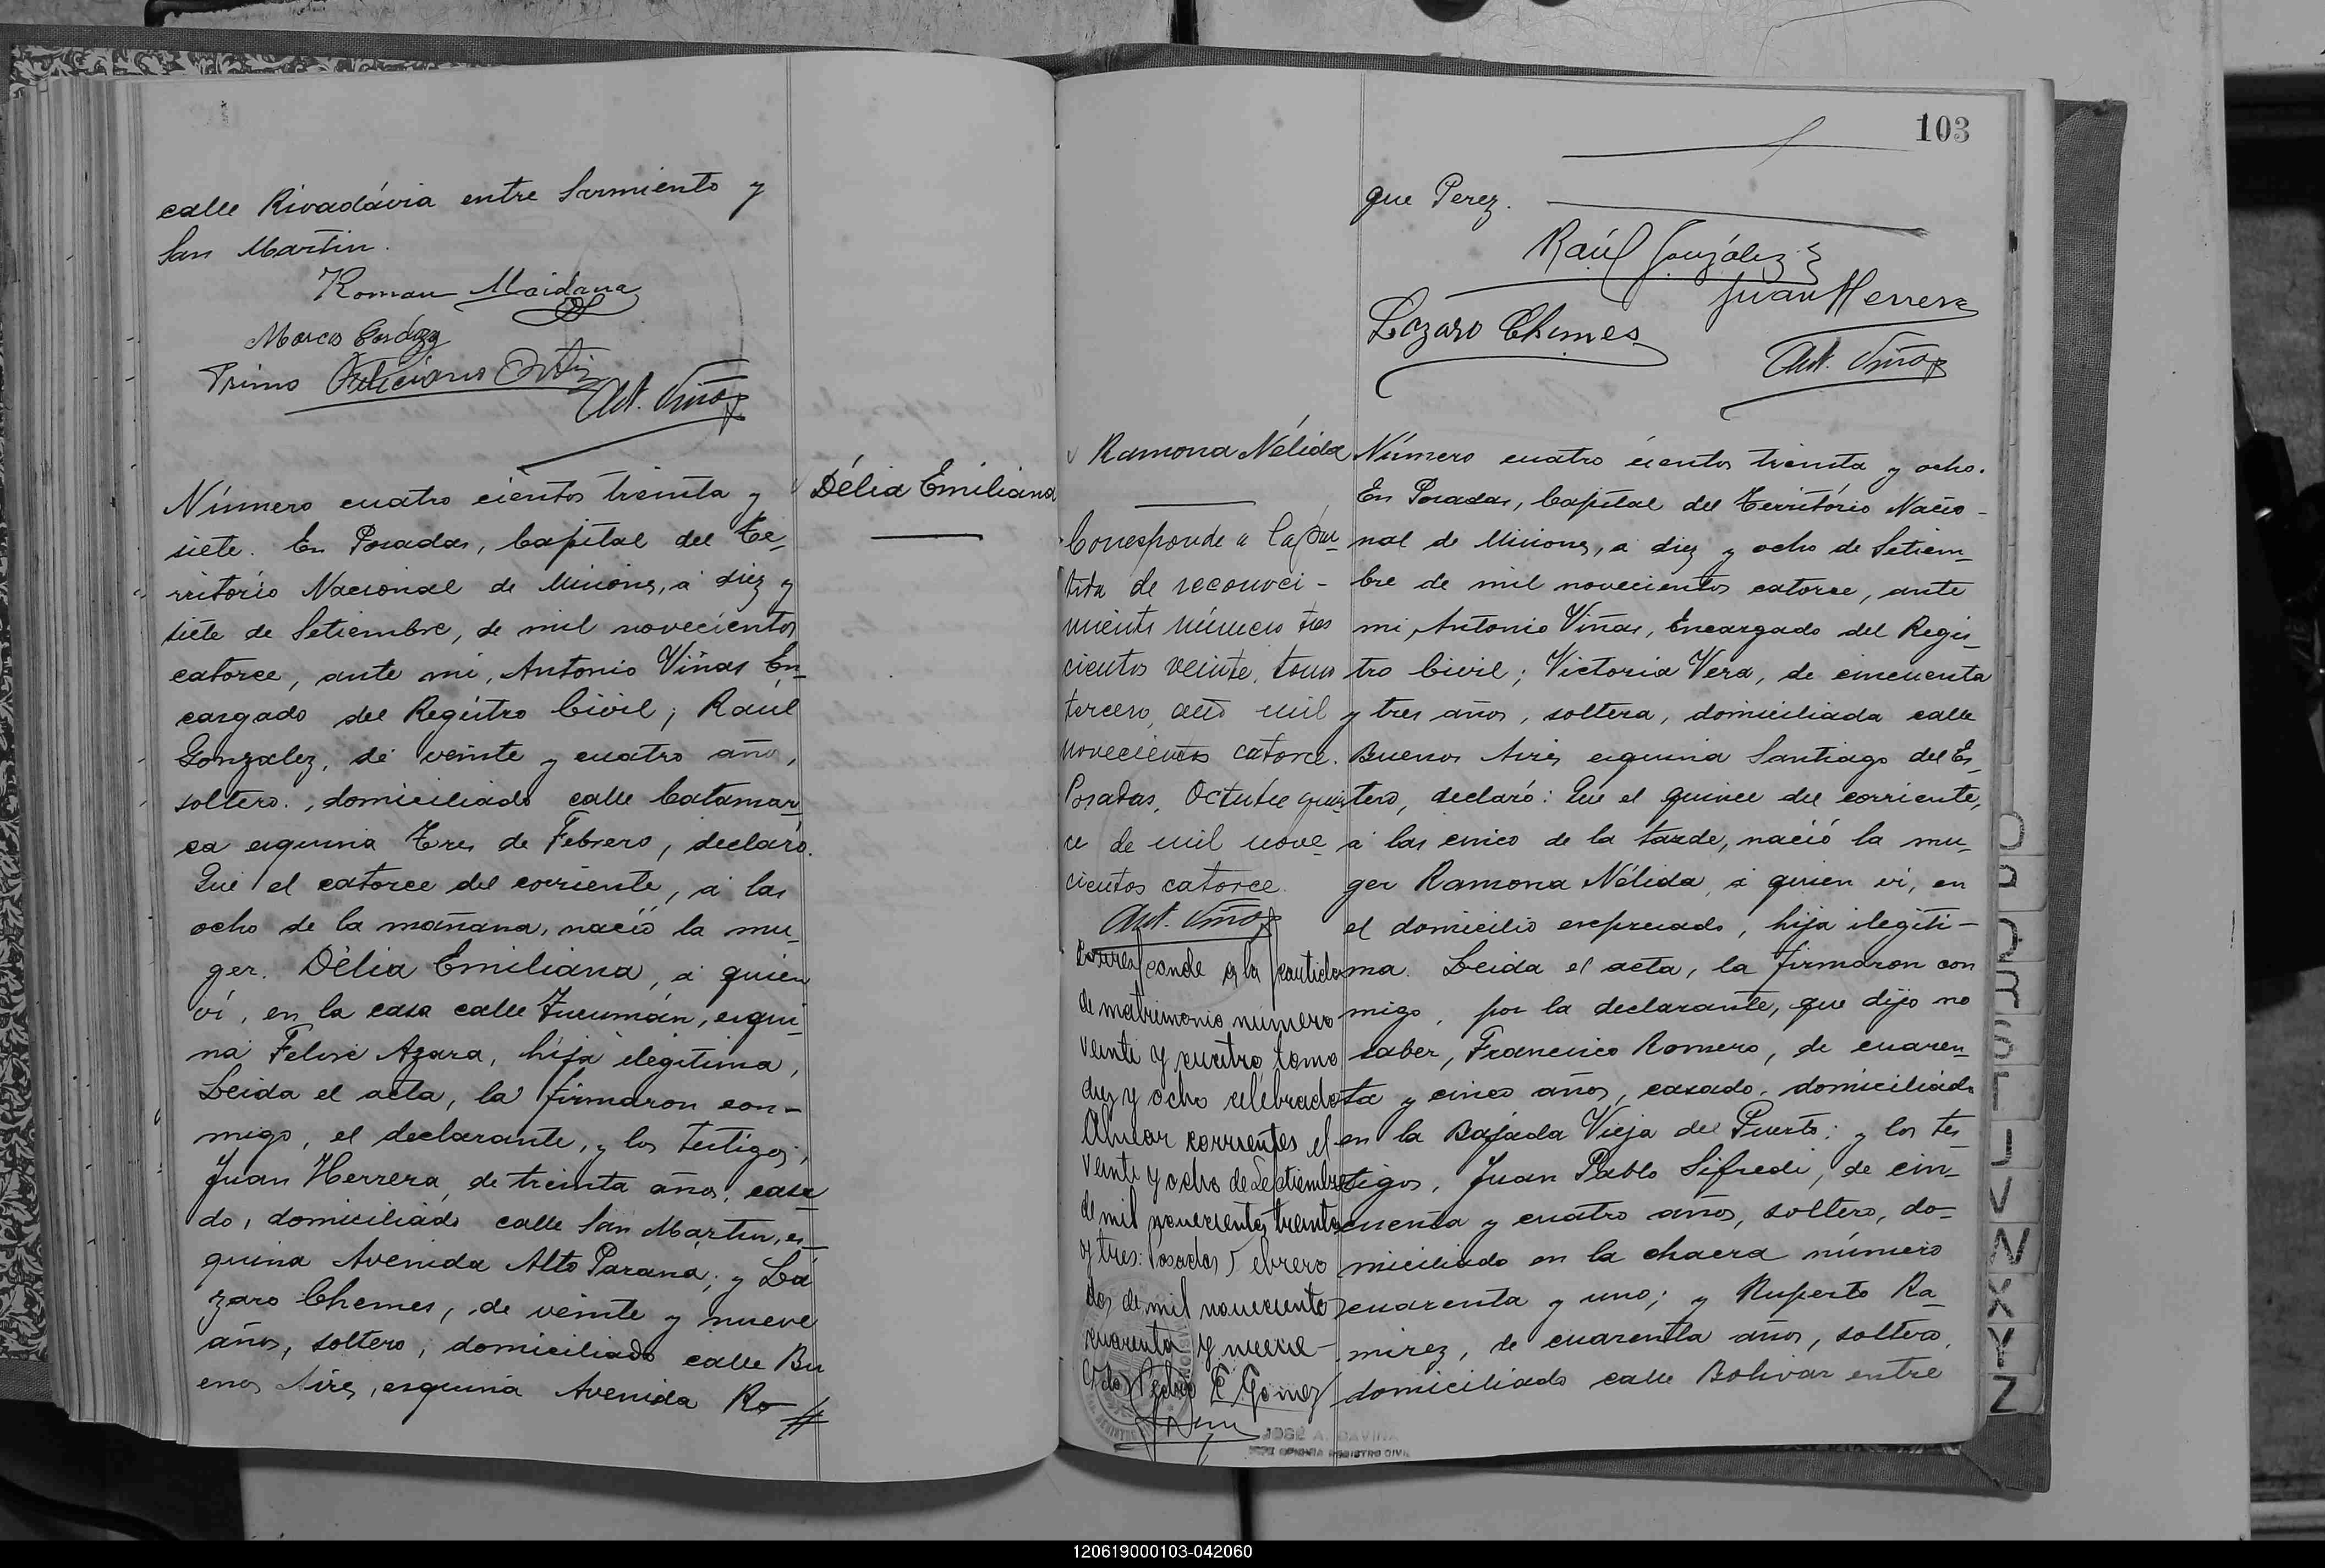 calle Rivadávia entre Sarmiento y
San Martin.
Roman Maidana
Marcos
Primo Feliciano Ortiz
Ant. Viñas
Número cuatro cientos treinta y
siete. En Posadas, Capital del Te-
rritório Nacional de Misiones, á diez y
siete de Setiembre, de mil novecientos
catorce, ante mi, Antonio Viñas En-
cargado del Registro Civil; Raúl
Gonzalez, de veinte y cuatro años,
soltero, domiciliado calle Catamar-
ca esquina Tres de Febrero, declaró.
Que el catorce del corriente, á las
ocho de la mañana, nació la mu-
ger. Délia Emiliana, á quien
ví, en la casa calle Tucumán, esqui-
na Felix Azara, hija ilegitima,
Leida el acta, la firmaron con-
migo, el declarante, y los testigos,
Juan Herrera, de treinta años, casa-
do, domiciliado calle San Martin, es-
quina Avenida Alto Paraná; y Lá-
zaro Chemes, de veinte y nueve
años, soltero, domiciliado calle Bu
enos Aires, esquina Avenida Ro-#
Délia Emiliana
103
que Perez.
Raúl González
Juan Herrera
Lazaro Chemes
Ant. Viñas
Ramona Nélida
Corresponde a la par-
tida de reconoci-
miento número tres
cientos veinte, tomo
tercero, año mil
novecientos catorce.
Posadas, Octubre quin-
ce de mil nove-
cientos catorce.
Ant. Viñas
Corresponde a la partida
de matrimonio número
veinte y cuatro tomo
diez y ocho celebrado
Corrientes el
veinte y ocho de Septiembre
de mil novecientos treinta
y tres: Posadas Febrero
dos de mil novecientos
cuarenta y nueve-
Pedro E. Gomez
JOSÉ A. GAVIÑA
JEFE OFICINA REGISTRO CIVIL
Número cuatro cientos treinta y ocho.
En Posadas, Capital del Território Nacio-
nal de Misiones, á diez y ocho de Setiem-
bre de mil novecientos catorce, ante
mi, Antonio Viñas, Encargado del Regis-
tro Civil; Victoria Vera, de cincuenta
y tres años, soltera, domiciliada calle
Buenos Aires esquina Santiago del Es-
tero, declaró: Que el quince del corriente,
á las cinco de la tarde, nació la mu-
ger Ramona Nélida, á quien ví, en
el domicilio expresado, hija ilegiti-
ma. Leida el acta, la firmaron con
migo, por la declarante, que dijo no
saber, Francisco Romero, de cuaren-
ta y cinco años, casado, domiciliado
en la Bajada Vieja del Puerto; y los tes-
tigos, Juan Pablo Sifredi, de cin-
cuenta y cuatro años, soltero, do-
miciliado en la chacra número
cuarenta y uno; y Ruperto Ra-
mirez, de cuarenta años, soltero,
domiciliado calle Bolivar entre
O
P
Q
R
S
T
J
V
W
X
Y
Z
120619000103-042060